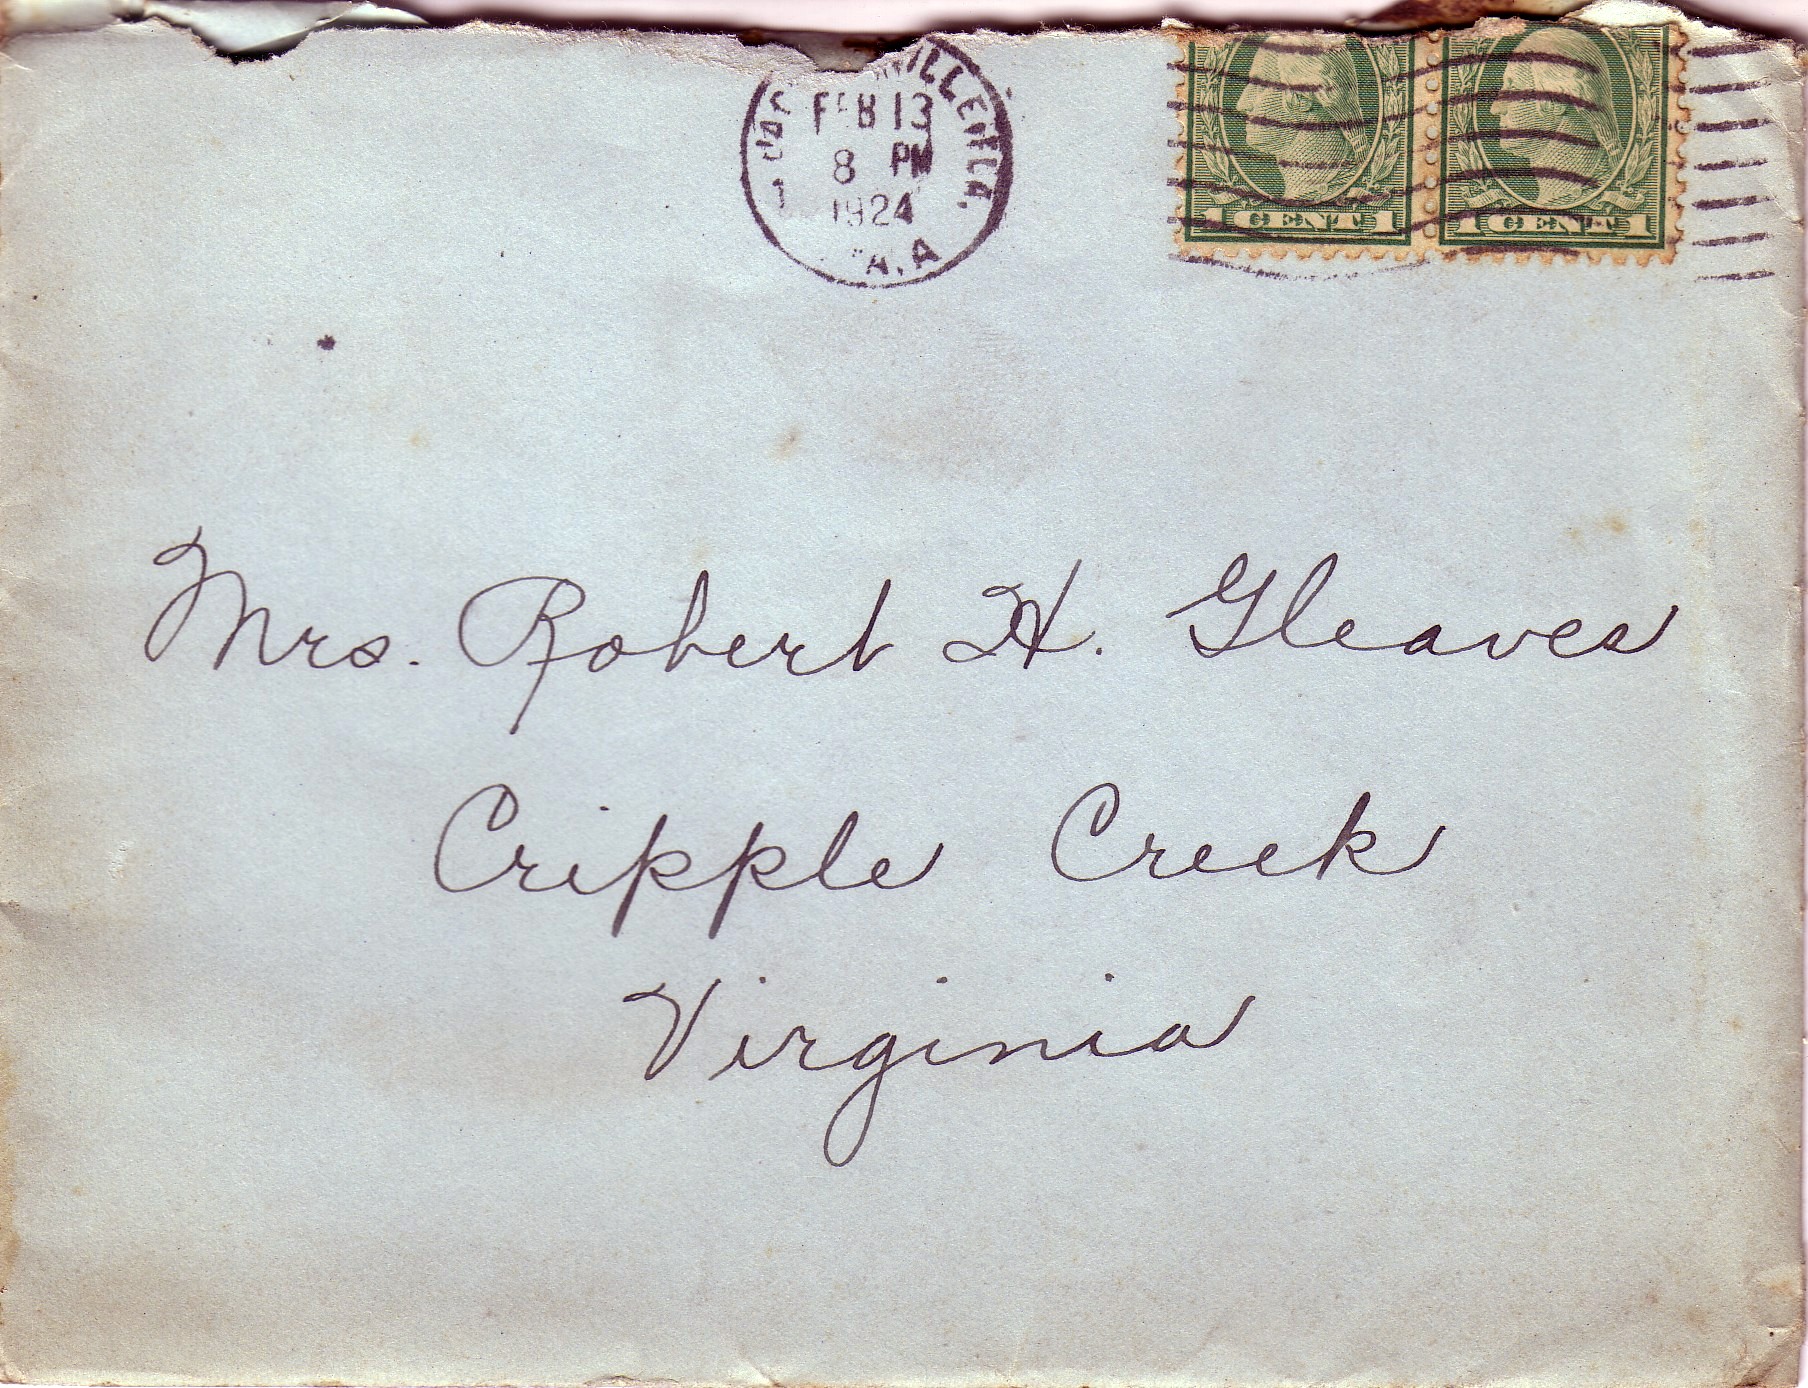 FEB 13
8 PM
1924
1 CENT 1 1 CENT 1
Mrs. Robert H. Gleaves
Cripple Creek
Virginia